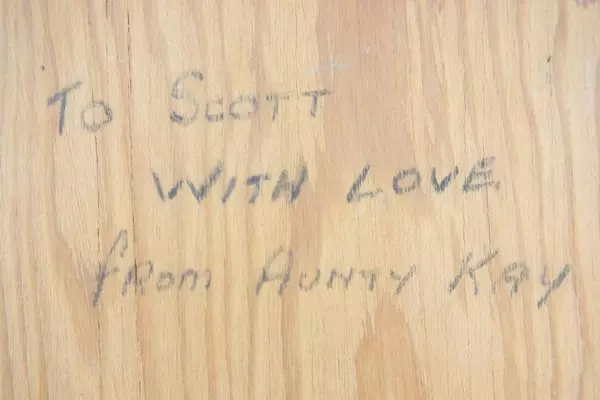 To SCOTT
WITH LOVE
from AUNTY KAY